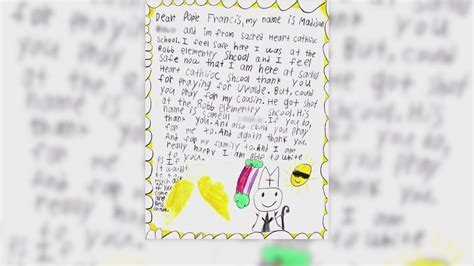 Dear Pope Francis, my name is Madison
and im from sacred Heart cathlic
School. I feel safe here I was at the
Robb elementry Shcool and I feel
Safe now that I am here at Sacred
Heart cathlioc Shcool thank you
for praying for Uvalde. But, could
you pray for my cousin. He got shot
at the Robb elementry Shcool. His
name is Samuel If you do,
thank you. And also could you pray
for me to. And again thank you
And for my family to. And I am
really happy I am able to write
to you.